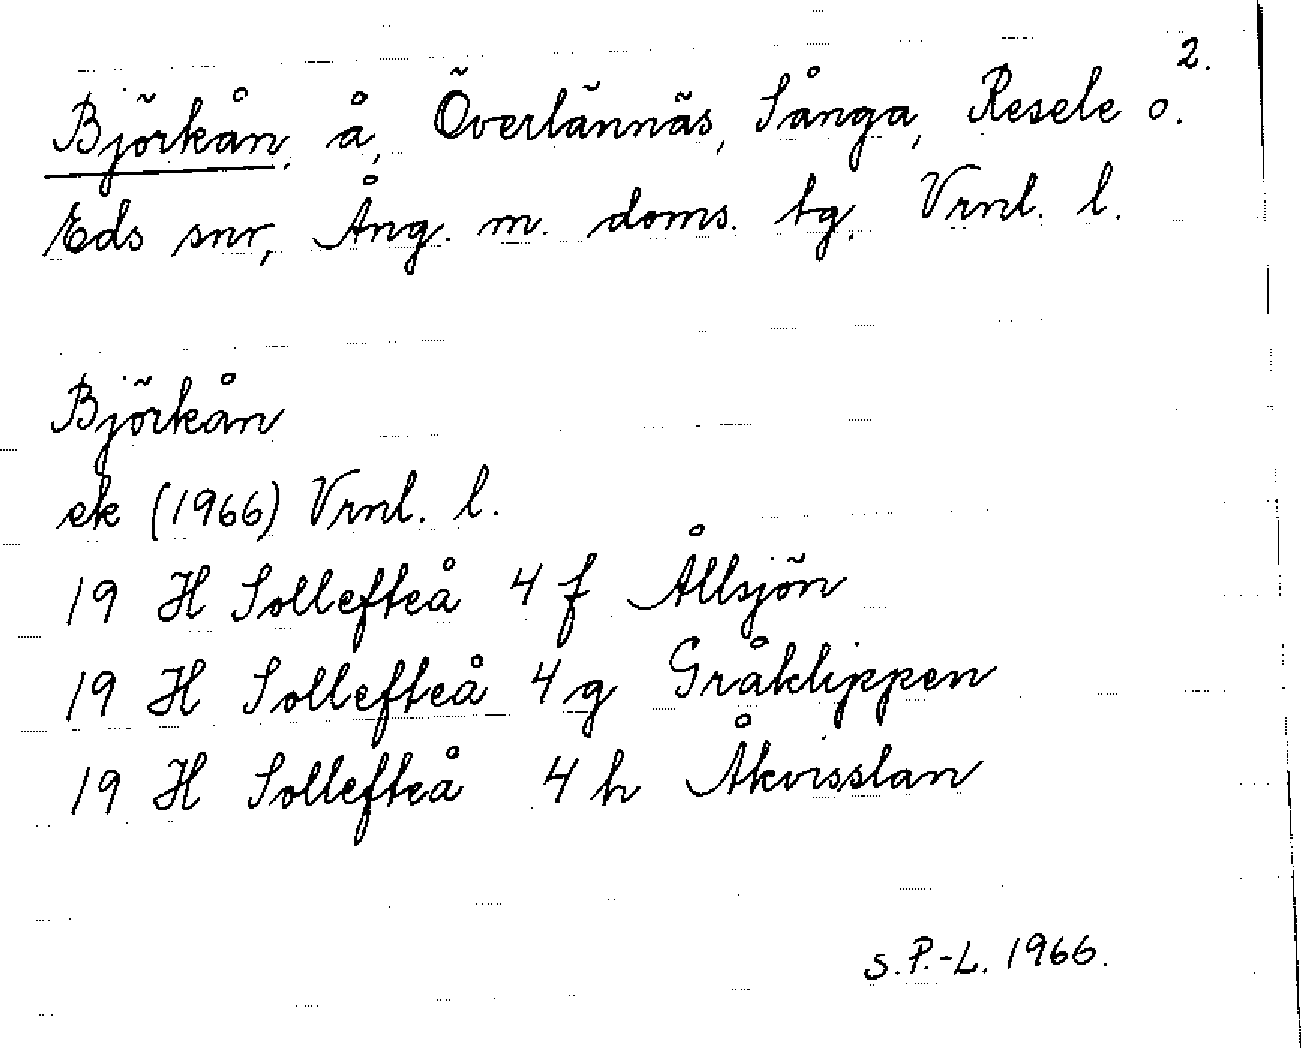 2.
Björkån, å, Överlännäs, Sånga, Resele o.
Eds snr, Ång. m. doms. tg. Vrnl. l.
Björkån
ek (1966) Vrnl. l.
19 H Sollefteå 4 f Ållsjön
19 H Sollefteå 4 g Gråklippen
19 H Sollefteå 4 h Åkvisslan
S. P.-L. 1966.